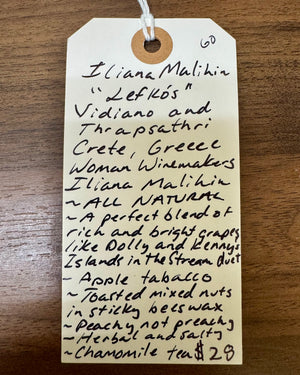 60
Iliana Malihin
"Lefkós"
Vidiano and
Thrapsathri
Crete, Greece
Woman Winemakers
Iliana Malihin
~ ALL NATURAL
~ A perfect blend of
rich and bright grapes
like Dolly and Kennys
Islands in the Stream duet
- Apple tabacco
~ Toasted mixed nuts
in sticky beeswax
~ Peachy not preachy
~ Herbal and salty
~ Chamomile tea $28